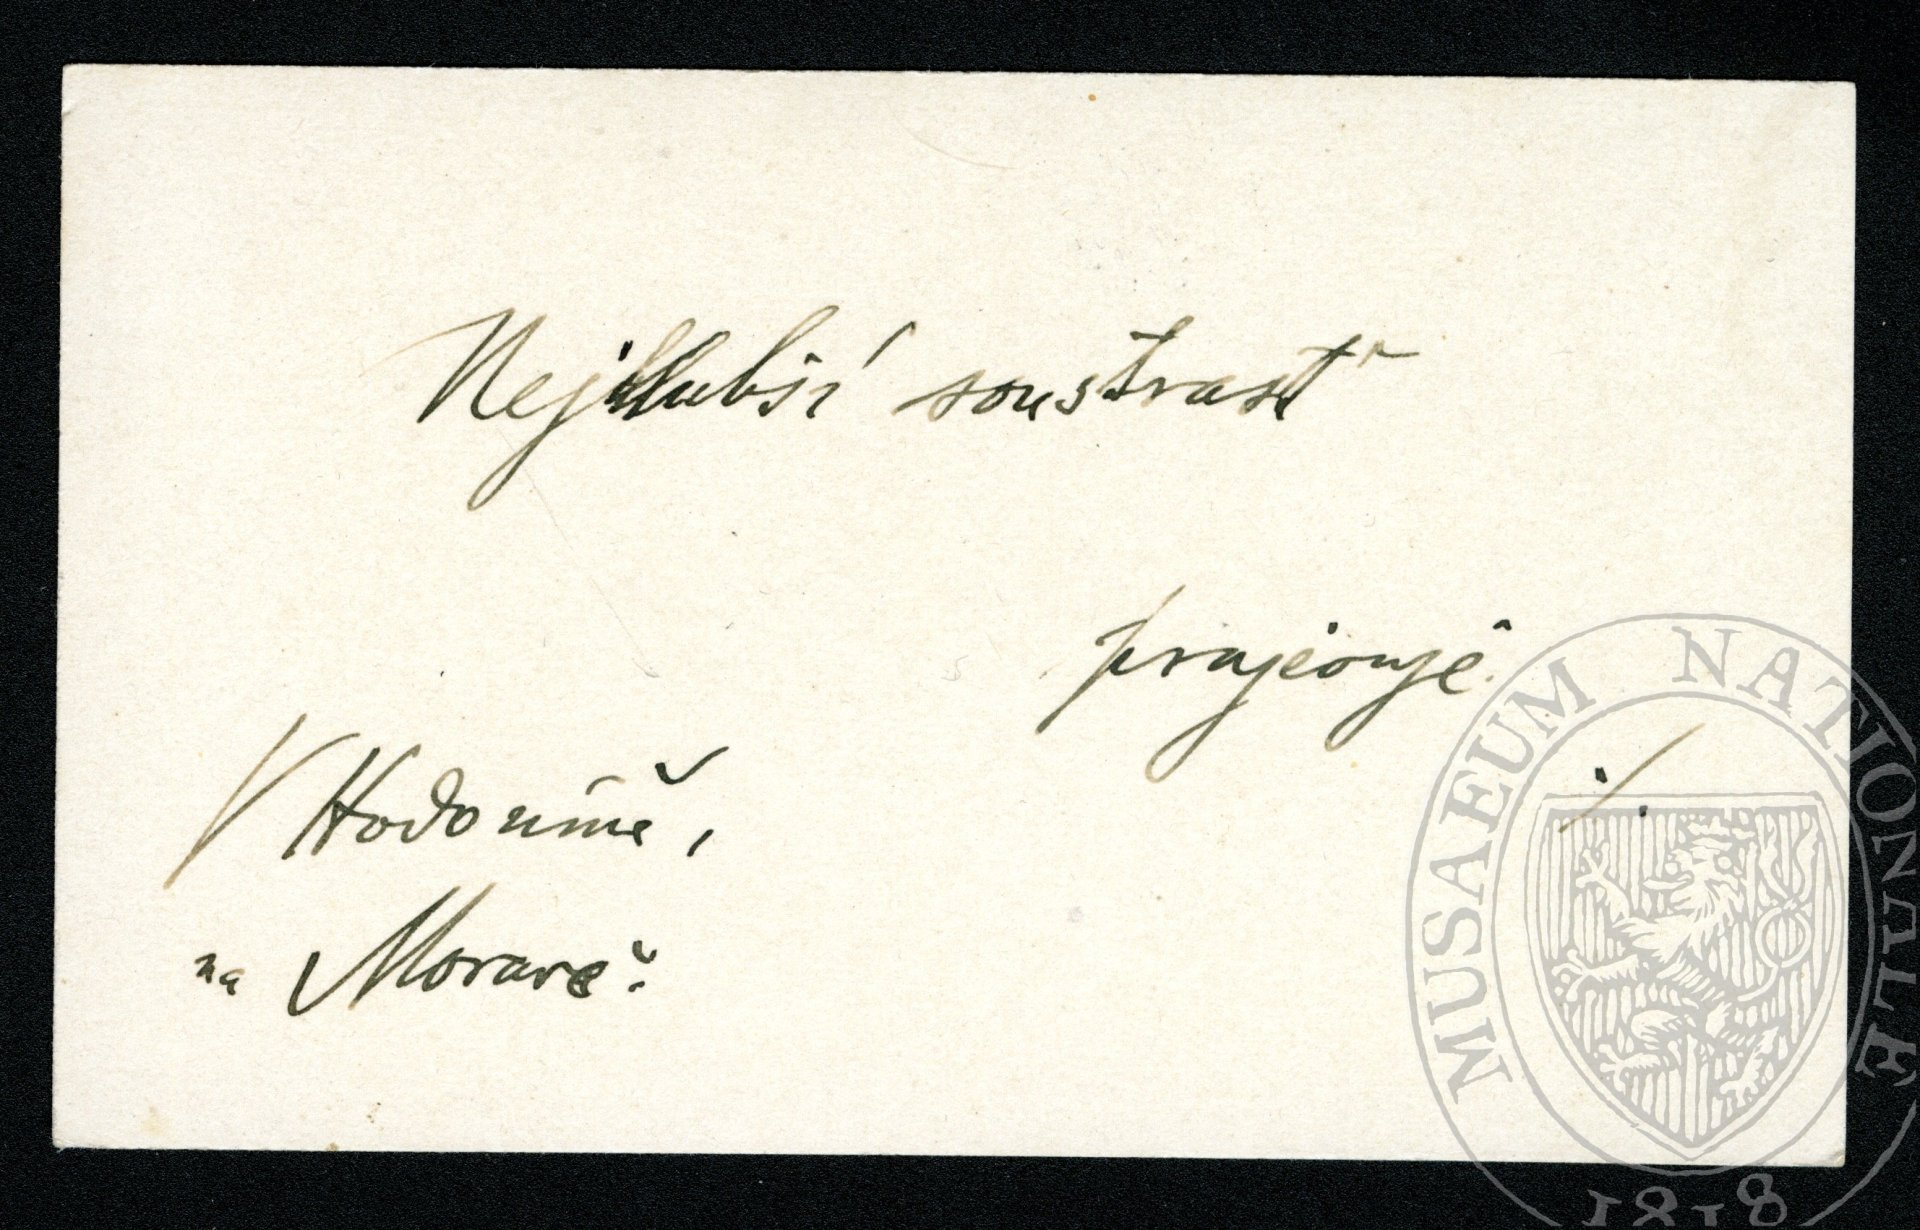 Nejhlubší soustrast
projevuje
V Hodoníně,
na Moravě.
./.
MUSAEUM NATIONALE
1818